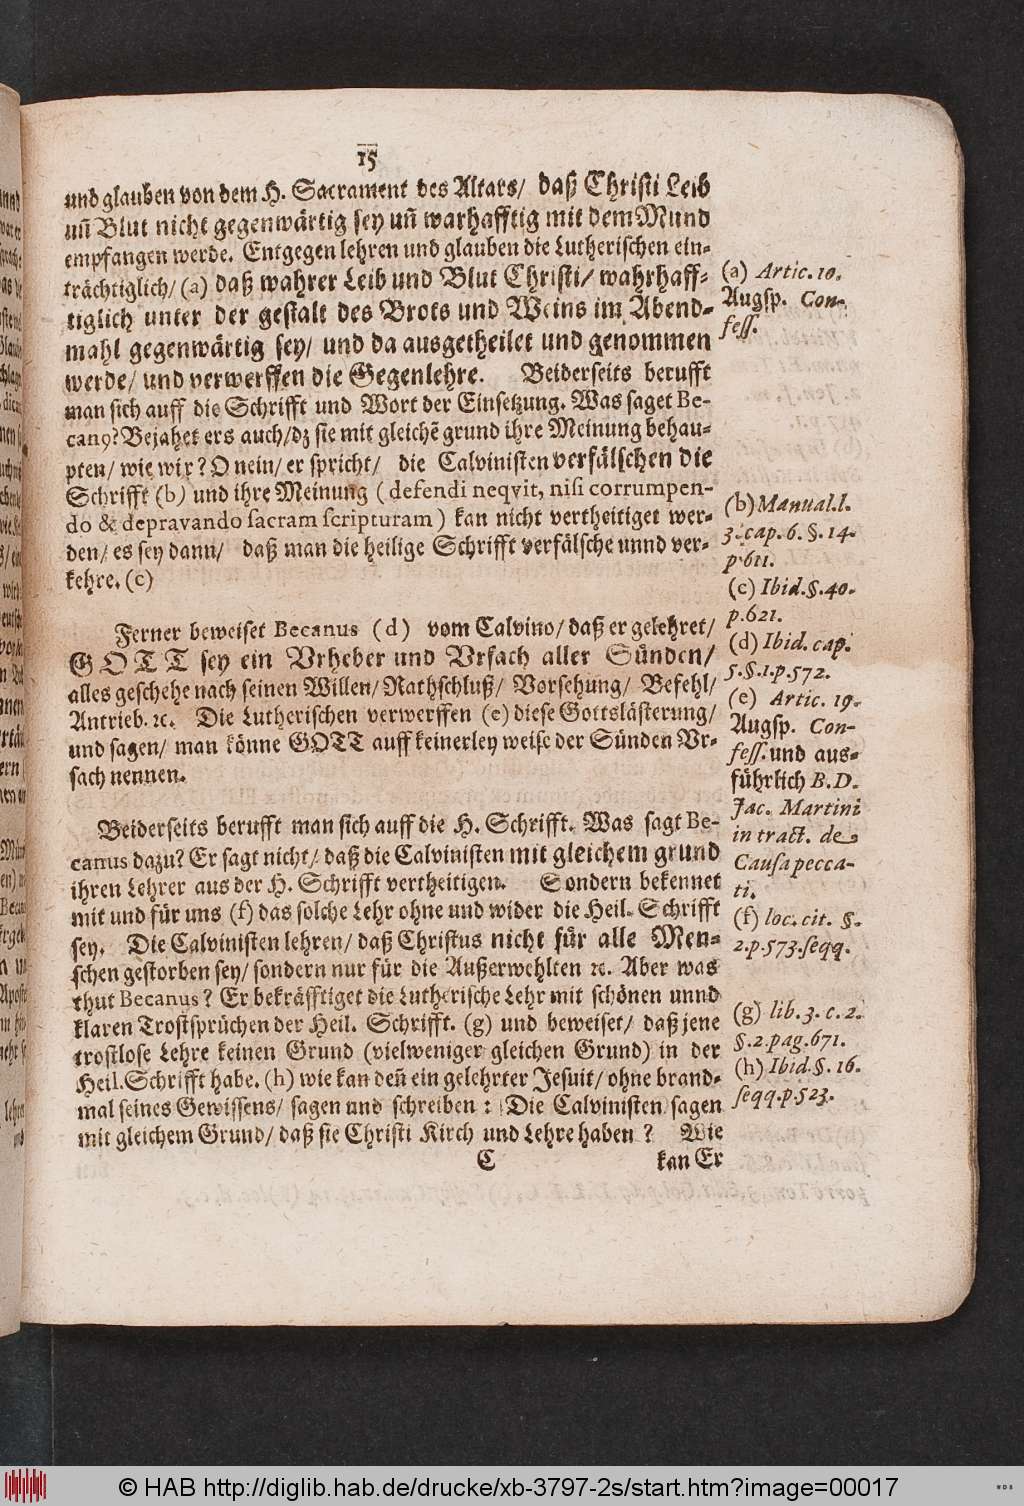 15
und glauben von dem H. Sacrament des Altars/ daß Christi Leib
uñ Blut nicht gegenwärtig sey uñ warhafftig mit dem Mund
empfangen werde. Entgegen lehren und glauben die Lutherischen ein-
trächtiglich/ (a) daß wahrer Leib und Blut Christi/ wahrhaff-
tiglich unter der gestalt des Brots und Weins im Abend-
mahl gegenwärtig sey/ und da ausgetheilet und genommen
werde/ und verwerffen die Gegenlehre. Beiderseits berufft
man sich auff die Schrifft und Wort der Einsetzung. Was saget Be-
canꝰ? Bejahet ers auch/ dz sie mit gleichẽ grund ihre Meinung behau-
pten/ wie wir? O nein/ er spricht/ die Calvinisten verfälschen die
Schrifft (b) und ihre Meinung ( defendi neqvit, nisi corrumpen-
do & depravando sacram scripturam ) kan nicht vertheitiget wer-
den/ es sey dann/ daß man die heilige Schrifft verfälsche unnd ver-
kehre. (c)
Ferner beweiset Becanus (d) vom Calvino/ daß er gelehret/
GOTT sey ein Vrheber und Vrsach aller Sünden/
alles geschehe nach seinen Willen/ Rathschluß/ Vorsehung/ Befehl/
Antrieb. ꝛc. Die Lutherischen verwerffen (e) diese Gottslästerung/
und sagen/ man könne GOTT auff keinerley weise der Sünden Vr-
sach nennen.
Beiderseits berufft man sich auff die H. Schrifft. Was sagt Be-
canus dazu? Er sagt nicht/ daß die Calvinisten mit gleichem grund
ihren Lehrer aus der H. Schrifft vertheitigen. Sondern bekennet
mit und für uns (f) das solche Lehr ohne und wider die Heil. Schrifft
sey. Die Calvinisten lehren/ daß Christus nicht für alle Men-
schen gestorben sey/ sondern nur für die Außerwehlten ꝛc. Aber was
thut Becanus? Er bekräfftiget die Lutherische Lehr mit schönen unnd
klaren Trostsprüchen der Heil. Schrifft. (g) und beweiset/ daß jene
trostlose Lehre keinen Grund (vielweniger gleichen Grund) in der
Heil. Schrifft habe. (h) wie kan deñ ein gelehrter Jesuit/ ohne brand-
mal seines Gewissens/ sagen und schreiben: Die Calvinisten sagen
mit gleichem Grund/ daß sie Christi Kirch und Lehre haben? Wie
C kan Er
(a) Artic. 10.
Augsp. Con-
fess.
(b) Manual. l.
3. cap. 6. §. 14.
p. 611.
(c) Ibid. §. 40.
p. 621.
(d) Ibid. cap.
5. §. 1. p. 572.
(e) Artic. 19.
Augsp. Con-
fess. und aus-
führlich B. D.
Jac. Martini
in tract. de
Causa pecca-
ti.
(f) loc. cit. §.
2. p. 573. seqq.
(g) lib. 3. c. 2.
§. 2. pag. 671.
(h) Ibid. §. 16.
seqq. p. 523.
© HAB http://diglib.hab.de/drucke/xb-3797-2s/start.htm?image=00017